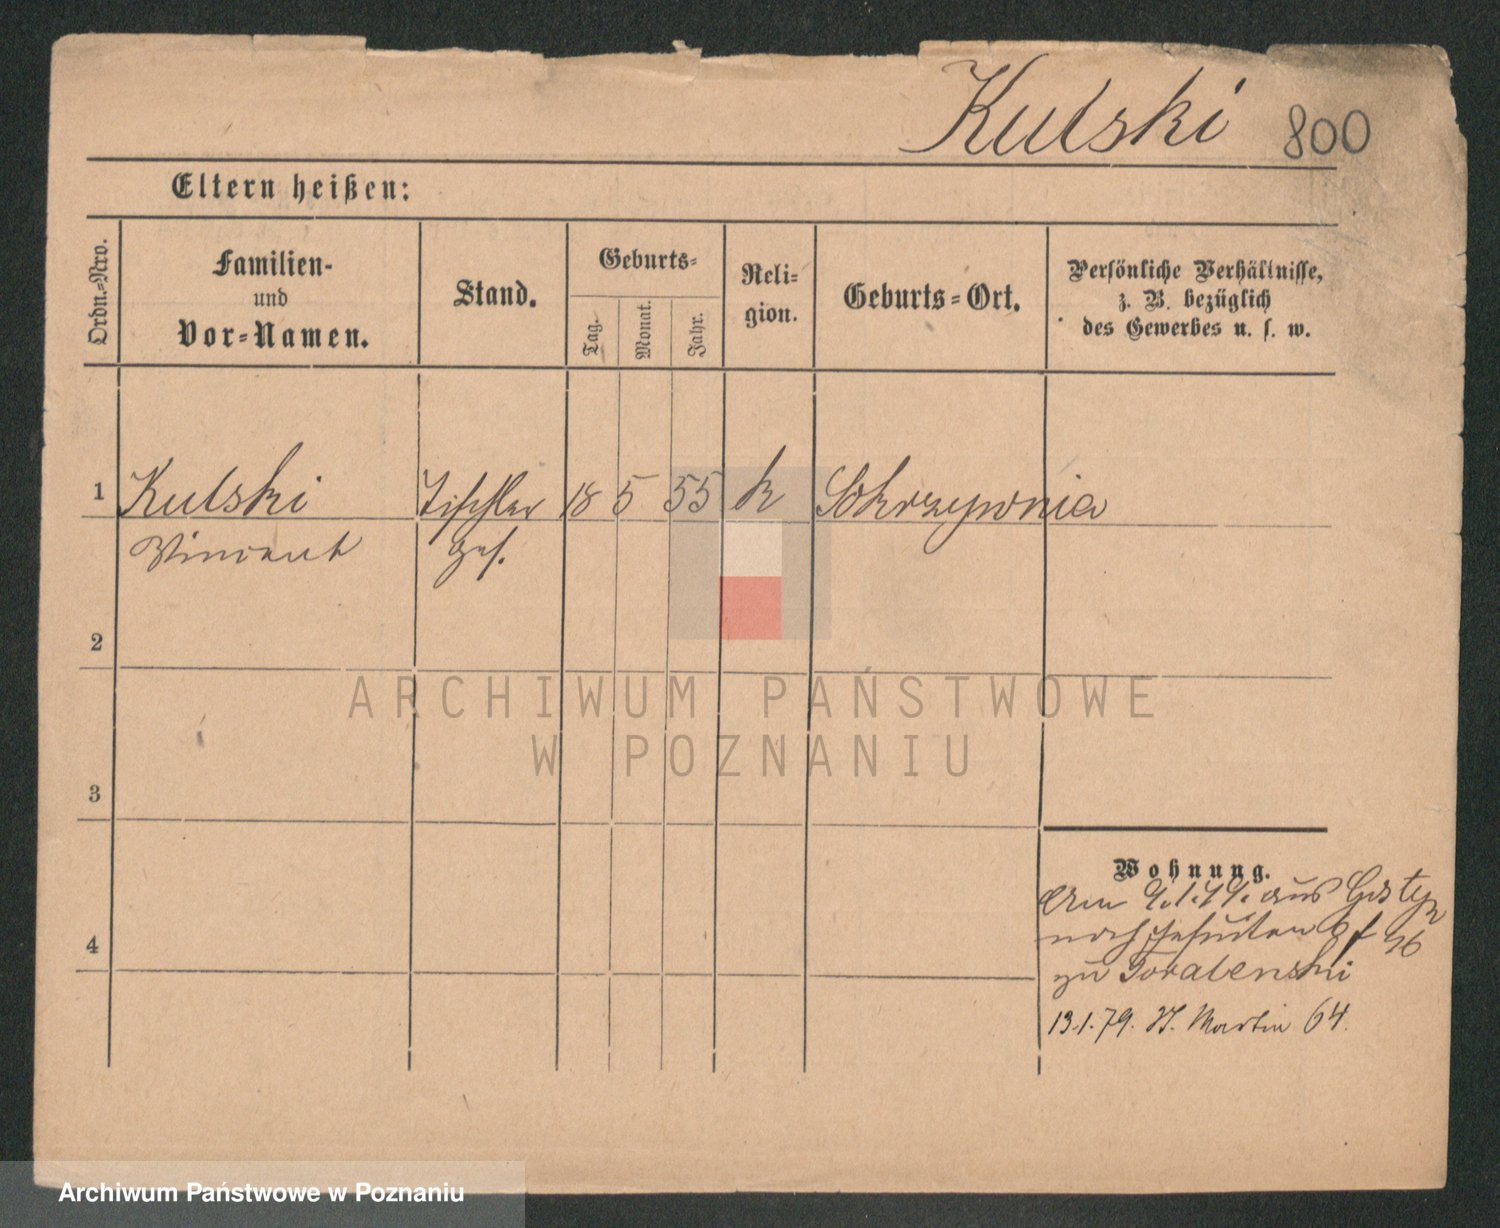 Kulski 800
Eltern heißen:
Ordn.-Nro.
Familien-
und
Vor-Namen.
Stand.
Geburts-
Tag.
Monat.
Jahr.
Reli-
gion.
Geburts-Ort.
Persönliche Verhältnisse,
z. B. bezüglich
des Gewerbes u. s. w.
1 Kulski Tischler 18 5 55 k Sokrzywnia
Vincent Ges.
2
ARCHIWUM PAŃSTWOWE
W POZNANIU
3
Wohnung.
Am 9.1.79. aus Gostyn
nach Jesuiten
4
zu
13.1.79. St. Martin 64.
Archiwum Państwowe w Poznaniu